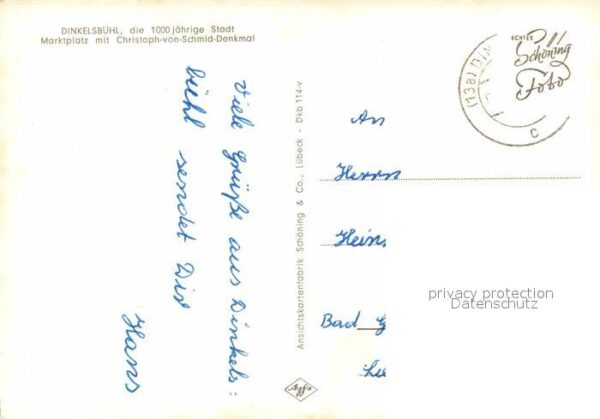 DINKELSBÜHL, die 1000 jährige Stadt
Marktplatz mit Christoph-von-Schmid-Denkmal
Viele Grüße aus Dinkels=
bühl sendet Dir
Hans
Ansichtskartenfabrik Schöning & Co., Lübeck - Dkb 114-v
ECHTES
Schöning
Foto
(13a) Di
c
An
Herrn
Hein
Bad G
privacy protection
Datenschutz
Agfa